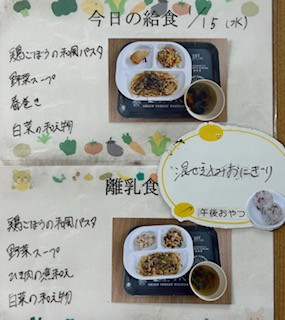 今日の給食 1/15(水)
鶏ごぼうの和風パスタ
野菜スープ
春巻き
白菜の和え物
混ぜ込みおにぎり
午後おやつ
離乳食
鶏ごぼうの和風パスタ
野菜スープ
ひき肉の煮和え
白菜の和え物